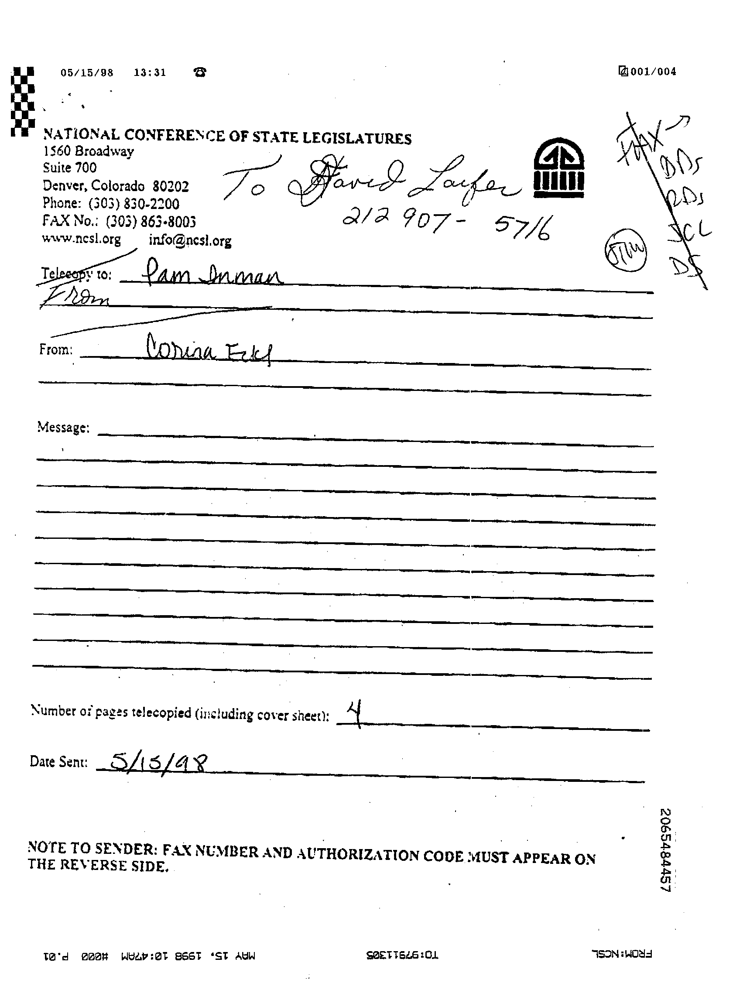 05/15/98 13:31 ☎ 001/004
NATIONAL CONFERENCE OF STATE LEGISLATURES
1560 Broadway
Suite 700
Denver, Colorado 80202
Phone: (303) 830-2200
FAX No.: (303) 863-8003
www.ncsl.org info@ncsl.org
To David Laufer
212 907-5716
FAX →
DDs
RDs
JCL
DS
Telecopy to: Pam Inman
From
From: Corina Eckl
Message:
Number of pages telecopied (including cover sheet): 4
Date Sent: 5/15/98
NOTE TO SENDER: FAX NUMBER AND AUTHORIZATION CODE MUST APPEAR ON
THE REVERSE SIDE.
2065484457
FROM:NCSL TO:97911305 MAY 15. 1998 10:47AM #000 P.01